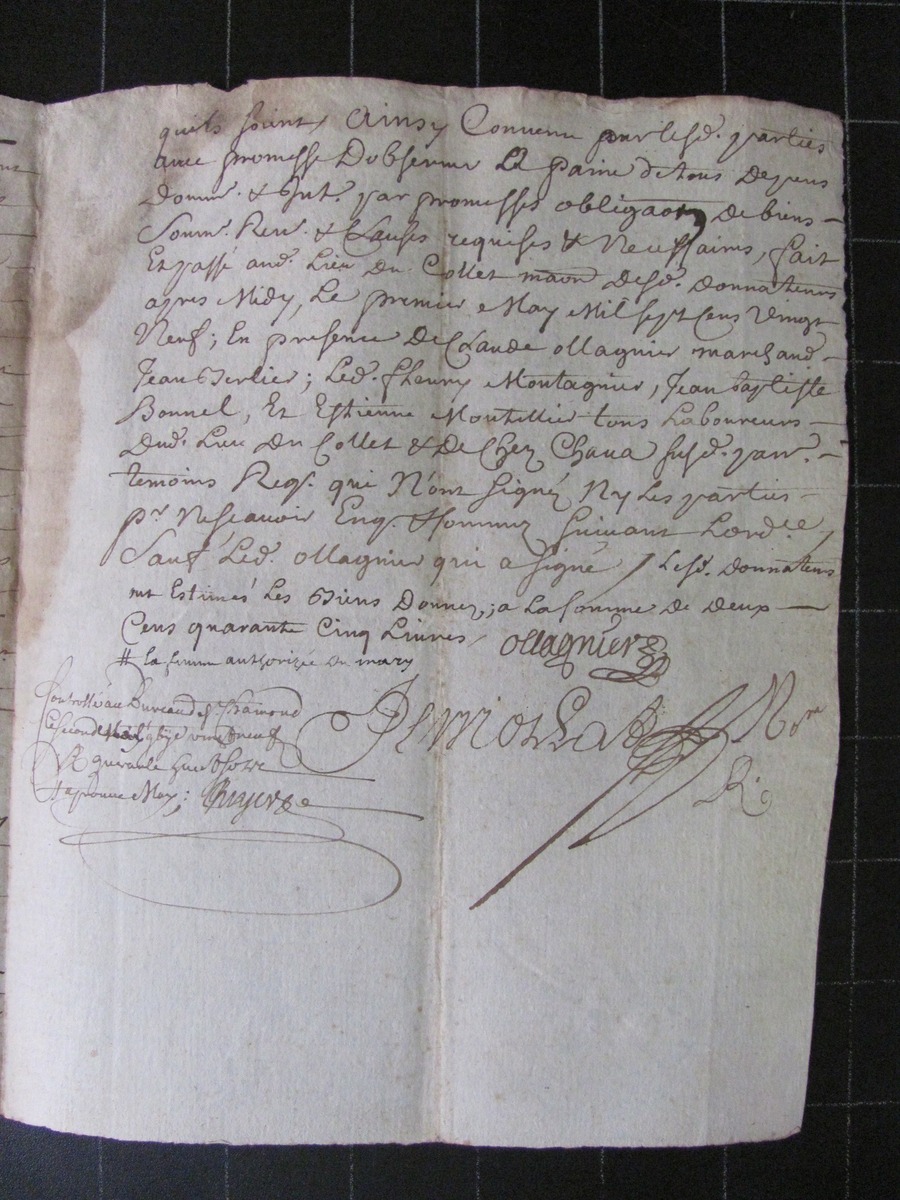 quils soient Ainsy Convenu par lesd. parties
avec promesse Dobserver La paine de tous Depens
Domm. & Int. par promesses obligaon De biens
Soum. Ren. & Clauses requises & Necessaires, fait
Et passé aud. Lieu du Collet maon desd. Donnateurs
apres Midy, Le premier May Mil sept Cens vingt
Neuf; En presence De Claude ollagnier marchand
Jean Berlier; Led. fleury Montagnier, Jean baptiste
Bonnel, Et Estienne Montellier tous Laboureurs
Dud. Lieu Du Collet & De Chez Chava susd. parr.
temoins Reqs. qui N'ont signéz Ny Les parties
pr. Nescavoir Enq. & sommez suivant Lord.ce
Sauf Led. ollagnier qui a signé / Lesd. donnateurs
ont Estimés Les Biens Donnez; a La somme de deux
Cens quarante Cinq Livres / ollagnier
# la femme authorizée du mary
Controllé au Bureau de St. Chamond
Le Second May 1729 vingt neuf
R.